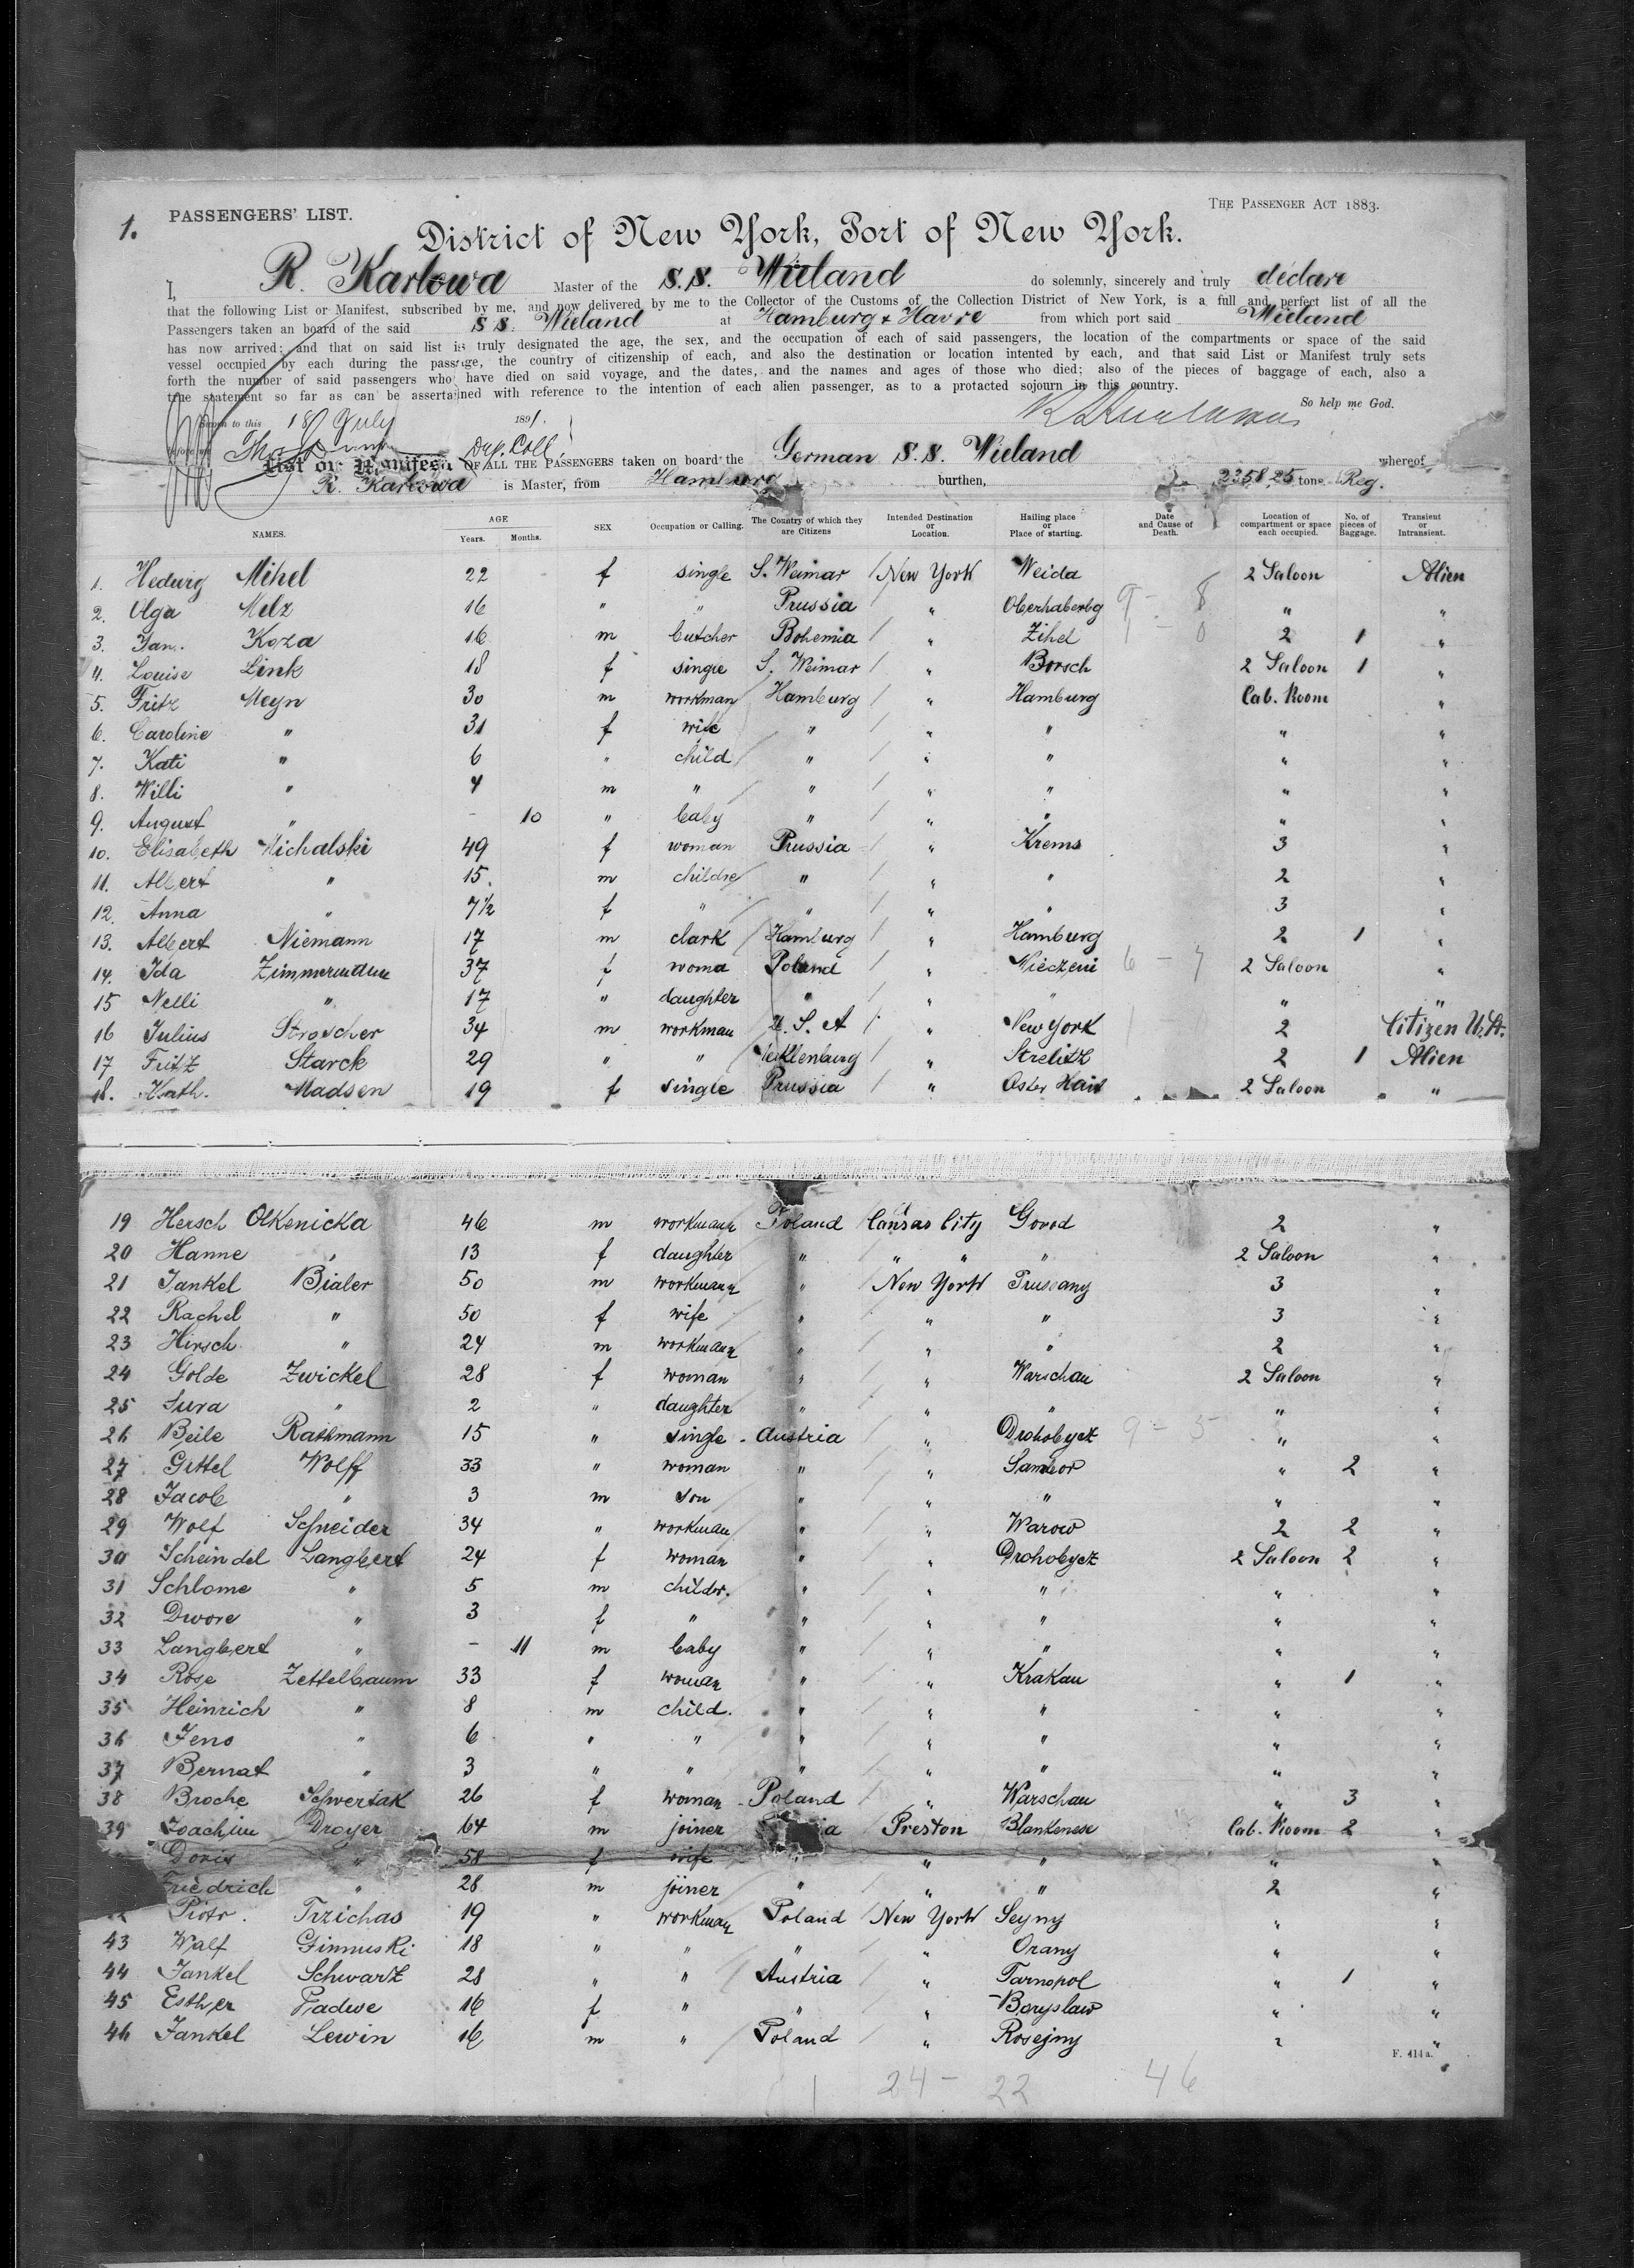 1.
PASSENGERS' LIST.
THE PASSENGER ACT 1883.
District of New York, Port of New York.
I, R. Karlowa Master of the S.S. Wieland do solemnly, sincerely and truly declare
that the following List or Manifest, subscribed by me, and now delivered by me to the Collector of the Customs of the Collection District of New York, is a full and perfect list of all the
Passengers taken an board of the said S S. Wieland at Hamburg & Havre from which port said Wieland
has now arrived; and that on said list is truly designated the age, the sex, and the occupation of each of said passengers, the location of the compartments or space of the said
vessel occupied by each during the passage, the country of citizenship of each, and also the destination or location intented by each, and that said List or Manifest truly sets
forth the number of said passengers who have died on said voyage, and the dates, and the names and ages of those who died; also of the pieces of baggage of each, also a
true statement so far as can be assertained with reference to the intention of each alien passenger, as to a protacted sojourn in this country.
So help me God.
Sworn to this 18 July 1891.
Dep. Coll.
List or Manifest OF ALL THE PASSENGERS taken on board the German S.S. Wieland whereof
R. Karlowa is Master, from Hamburg burthen, 2358 25 tons Reg.
NAMES. AGE Years. Months. SEX Occupation or Calling. The Country of which they are Citizens Intended Destination or Location. Hailing place or Place of starting. Date and Cause of Death. Location of compartment or space each occupied. No. of pieces of Baggage. Transient or Intransient.
1. Hedwig Mihel 22 f single S. Weimar New York Weida 2 Saloon Alien
2. Olga Melz 16 " " Prussia " Oberhaberbg 9 - 8 " "
3. Jan. Koza 16 m butcher Bohemia " Zihel 1 - 0 2 1 "
4. Louise Link 18 f single S. Weimar " Borsch 2 Saloon 1 "
5. Fritz Meyn 30 m workman Hamburg " Hamburg Cab. Room "
6. Caroline " 31 f wife " " " " "
7. Kati " 6 " child " " " " "
8. Willi " 4 m " " " " " "
9. August " - 10 " baby " " " " "
10. Elisabeth Michalski 49 f woman Prussia " Krems 3 "
11. Albert " 15. m childre " " " 2 "
12. Anna " 7½ f " " " " 3 "
13. Albert Niemann 17 m clark Hamburg " Hamburg 2 1 "
14. Ida 37 f woma Poland " 6 - 7 2 Saloon "
15 Nelli " 17 " daughter " " " " "
16 Julius Stroscher 34 m workman U. S. A " New York 2 Citizen U.St.
17 Fritz Starck 29 " " Meklenburg " Strelitz 2 1 Alien
18. Kath. Madsen 19 f single Prussia " Oster 2 Saloon "
19 Hersch Olkenicka 46 m workmann Poland Cansas City Govod 2 "
20 Hanne " 13 f daughter " " " " 2 Saloon "
21 Jankel Bialer 50 m workmann " New York Prussany 3 "
22 Rachel " 50 f wife " " " 3 "
23 Hirsch " 24 m workmann " " " 2 "
24 Golde Zwickel 28 f woman " " Warschau 2 Saloon "
25 Sura " 2 " daughter " " " " "
26 Beile Rathmann 15 " single Austria " Drohobycz 9 - 5 " "
27 Gittel Wolff 33 " woman " " Sambor " 2 "
28 Jacob " 3 m son " " " " "
29 Wolf Schneider 34 " workman " " Warow 2 2 "
30 Scheindel Langbert 24 f woman " " Drohobycz 2 Saloon 2 "
31 Schlome " 5 m childr. " " " " "
32 Dwore " 3 f " " " " " "
33 Langbert " - 11 m baby " " " " "
34 Rose Zettelbaum 33 f woman " " Krakau " 1 "
35 Heinrich " 8 m child. " " " " "
36 Jeno " 6 " " " " " " "
37 Bernat " 3 " " " " " " "
38 Broche Schwersak 26 f woman Poland " Warschau " 3 "
39 Joachim Droyer 64 m joiner a Preston Blankenese Cab. Room 2 "
Doris " 58 f wife " " " " "
Friedrich " 28 m joiner " " " 2 "
2 Piotr. Trzichas 19 " workman Poland New York Seyny " "
43 Walf Ginnuski 18 " " " " Orany " "
44 Jankel Schwartz 28 " " Austria " Tarnopol " 1 "
45 Esther Fradwe 16 f " " " Boryslaw " "
46 Jankel Lewin 16 m " Poland " Rosejny " "
F. 414 a.
24 - 22 46